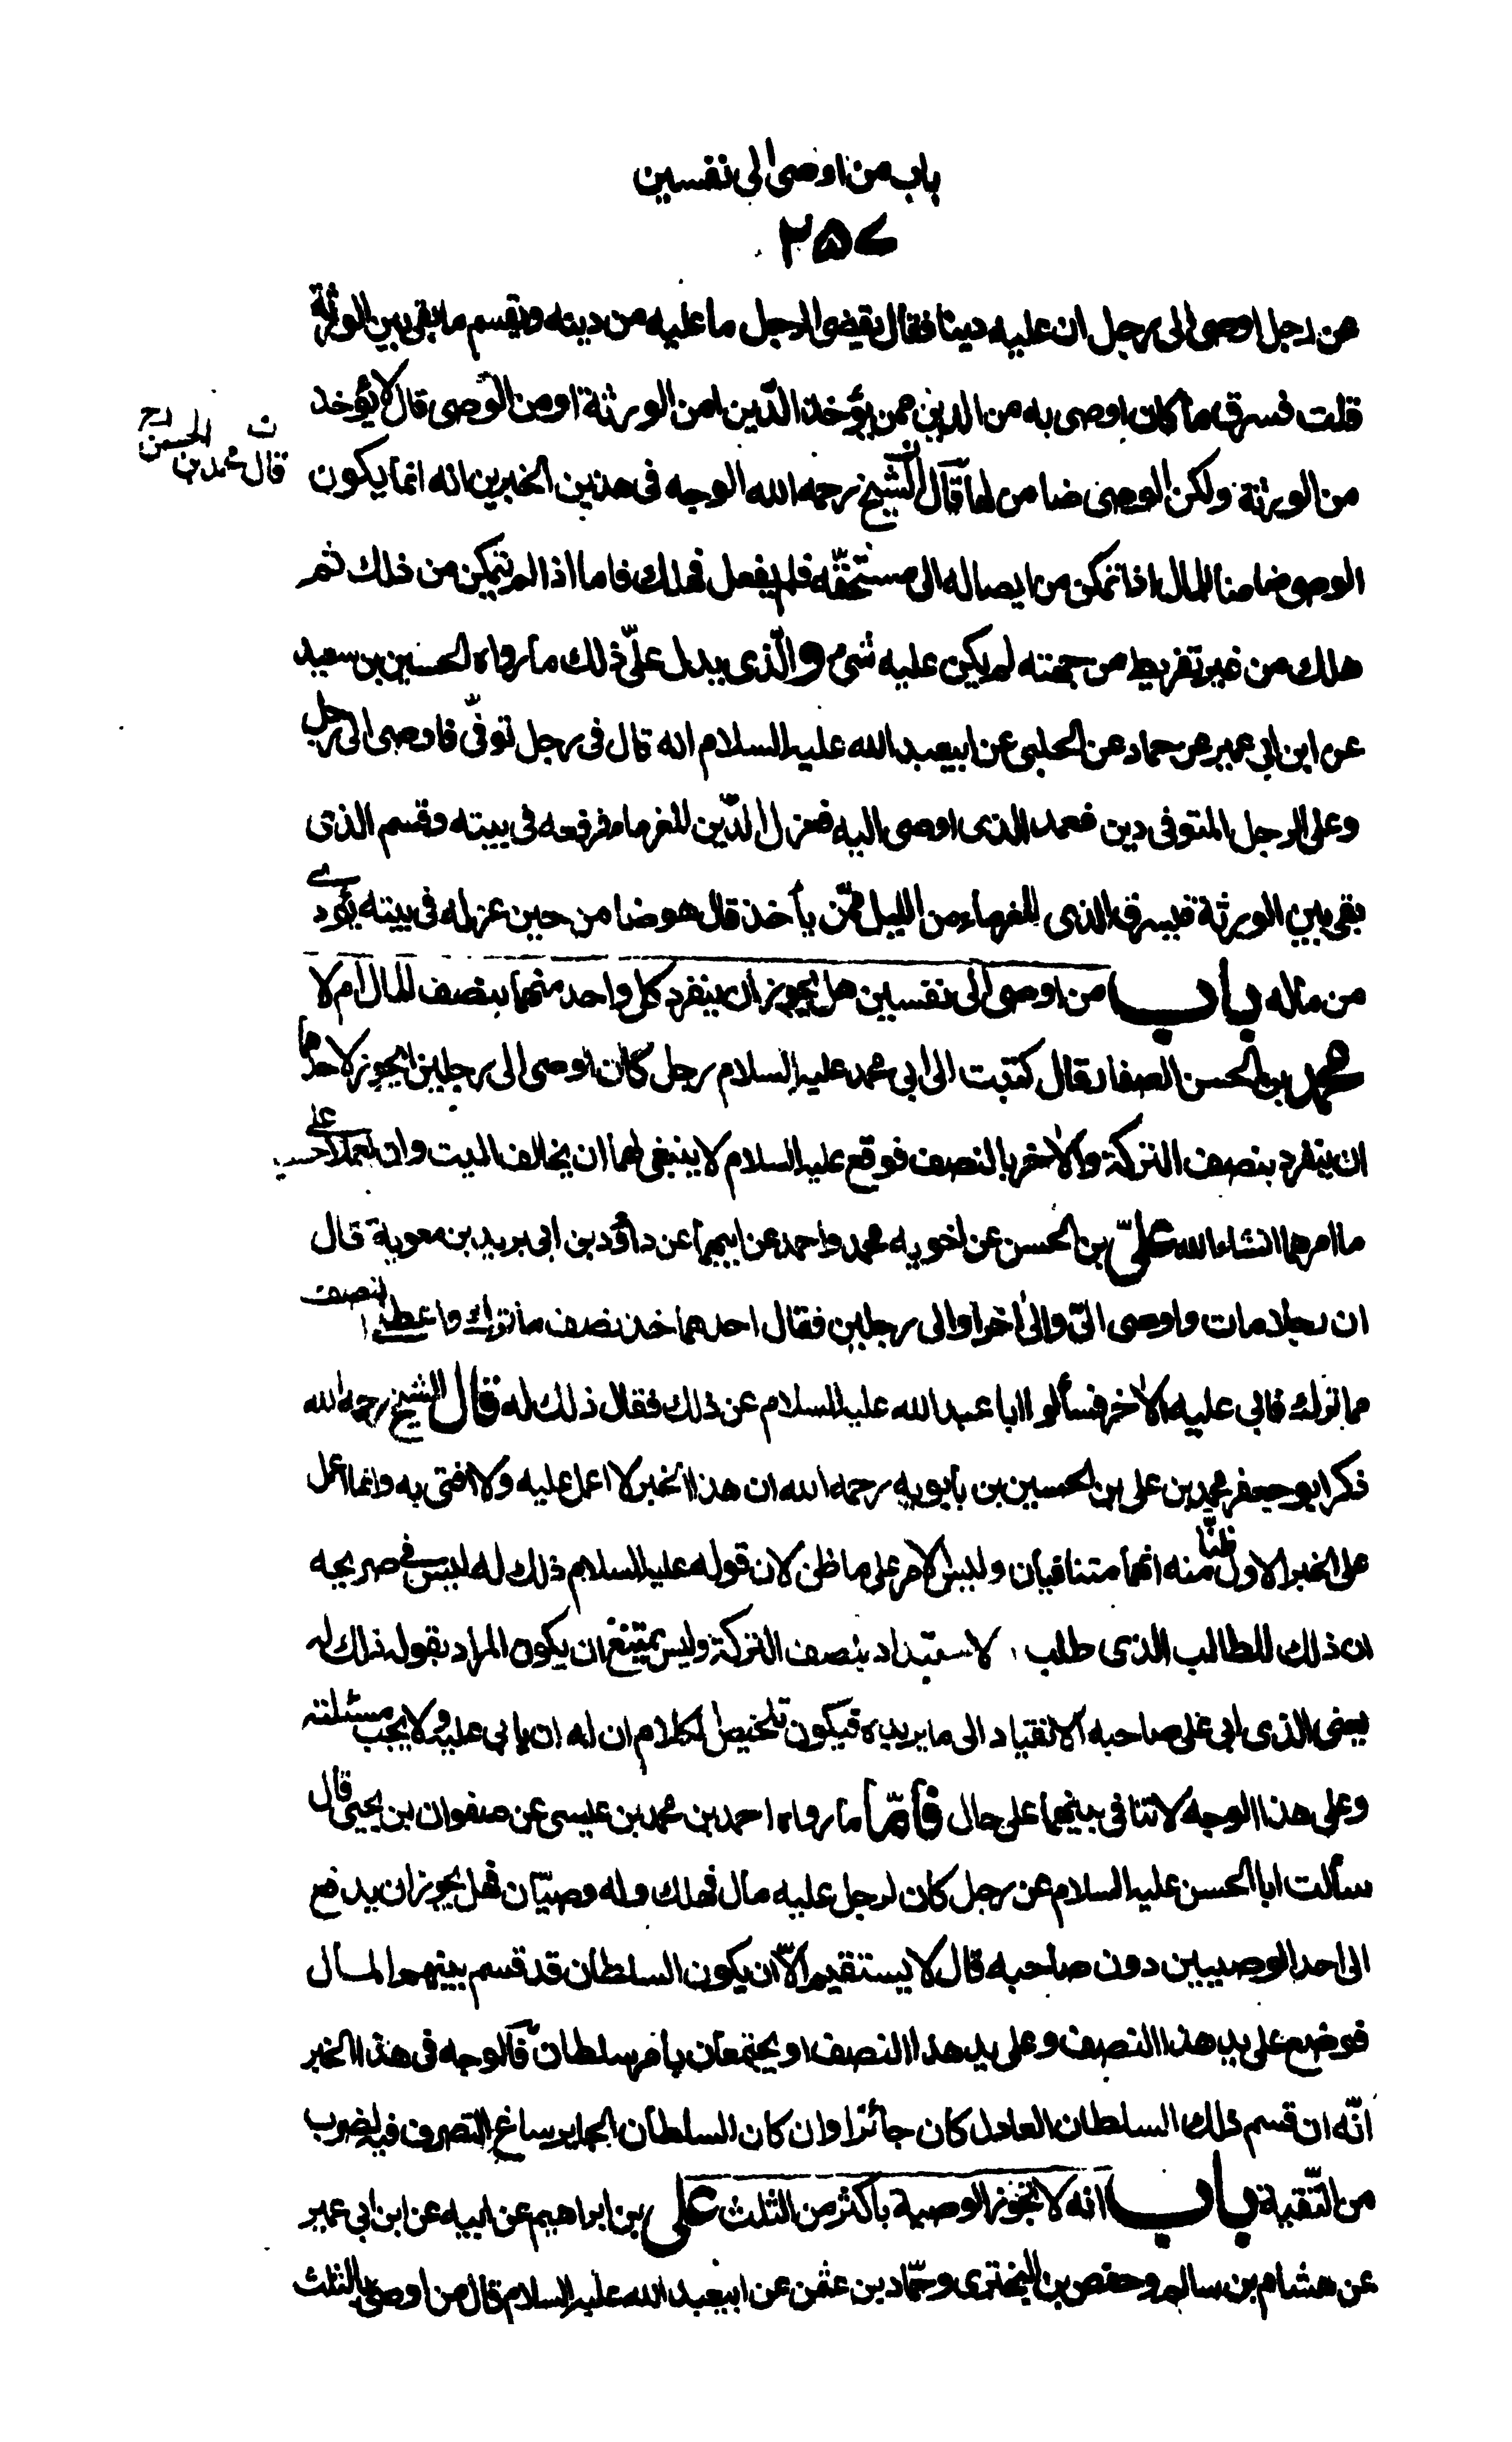 باب من اوصى الى نفسين
٢٥٧
عن رجل اوصى الى رجل ان عليه دينا فقال يقضى الرجل ما عليه من دينه ويقسم ما بقى بين الورثة
قلت فسرق ما كان اوصى به من الدين ممن يؤخذ الدّين امن الورثة او من الوصى قال لا يؤخذ
من الورثة ولكن الوصى ضامن لها قال الشيخ رحمه الله الوجه فى هذين الخبرين انه انما يكون
قال محمد بن الحسن
الوصى ضامنا للمال اذا تمكن من ايصاله الى مستحقّه فلم يفعل فهلك فاما اذا لم يتمكن من ذلك ثم
هلك من غير تفريط من جهته لم يكن عليه شئ والّذى يدل على ذلك ما رواه الحسين بن سعيد
عن ابن ابى عمير عن حماد عن الحلبى عن ابيعبد الله عليه السلام انه قال فى رجل توفّى فاوصى الى رجل
وعلى الرجل المتوفى دين فعمد الذى اوصى اليه فعزل الدّين للغرماء فرفعه فى بيته وقسم الذى
بقى بين الورثة فيسرق الذى للغرماء من الليل ممّن يأخذ قال هو ضامن حين عزله فى بيته يؤدى
من ماله باب من اوصى الى نفسين هل يجوز ان ينفرد كل واحد منهما بنصف المال ام لا
محمد بن الحسن الصفار قال كتبت الى ابى محمد عليه السلام رجل كان اوصى الى رجلين ايجوز لاحدهما
ان ينفرد بنصف التركة والاخر بالنصف فوقع عليه السلام لا ينبغى لهما ان يخالف الميت وان يعملا على حسب
ما امرهما انشاء الله علىّ بن الحسن عن اخويه محمد واحمد عن ابيهما عن داؤد بن ابى يزيد بن معوية قال
ان رجلا مات واوصى الىّ والى اخر او الى رجلين فقال احدهما خذ نصف ما ترك واعطنى النصف
مما ترك فابى عليه الاخر فسألوا ابا عبد الله عليه السلام عن ذلك فقال ذلك له قال الشيخ رحمه الله
ذكر ابو جعفر محمد بن على بن الحسين بن بابويه رحمه الله ان هذا الخبر لا اعمل عليه ولا افتى به وانما اعمل
على الخبر الاول ظنّا منه انهما متنافيان وليس الامر على ما ظن لان قوله عليه السلام ذلك له ليس فى صريحه
ان ذلك للطالب الذى طلب الاستبداد بنصف التركة وليس يمتنع ان يكون المراد بقوله ذلك له
يعنى الذى ابى على صاحبه الانقياد الى ما يريده فيكون تلخيص الكلام ان له ان يابى عليه ولا يجب مسئلته
وعلى هذا الوجه لا تنافى بينهما على حال فامّا ما رواه احمد بن محمد بن عيسى عن صفوان بن يحيى قال
سألت ابا الحسن عليه السلام عن رجل كان لرجل عليه مال فهلك وله وصيّان فهل يجوز ان يدفع
الى احد الوصيين دون صاحبه قال لا يستقيم الّا ان يكون السلطان قد قسم بينهم المال
فوضع على يد هذا النصف وعلى يد هذا النصف او يجتمعان بامر سلطان فالوجه فى هذا الخبر
انّه ان قسم ذلك السلطان العادل كان جائزا وان كان السلطان الجاير ساغ التصرف فيه لضرب
من التّقية باب انه لا تجوز الوصية باكثر من الثلث على بن ابراهيم عن ابيه عن ابن ابى عمير
عن هشام بن سالم وحفص بن البخترى وحمّاد بن عثمن عن ابيعبد الله عليه السلام قال من اوصى بالثلث